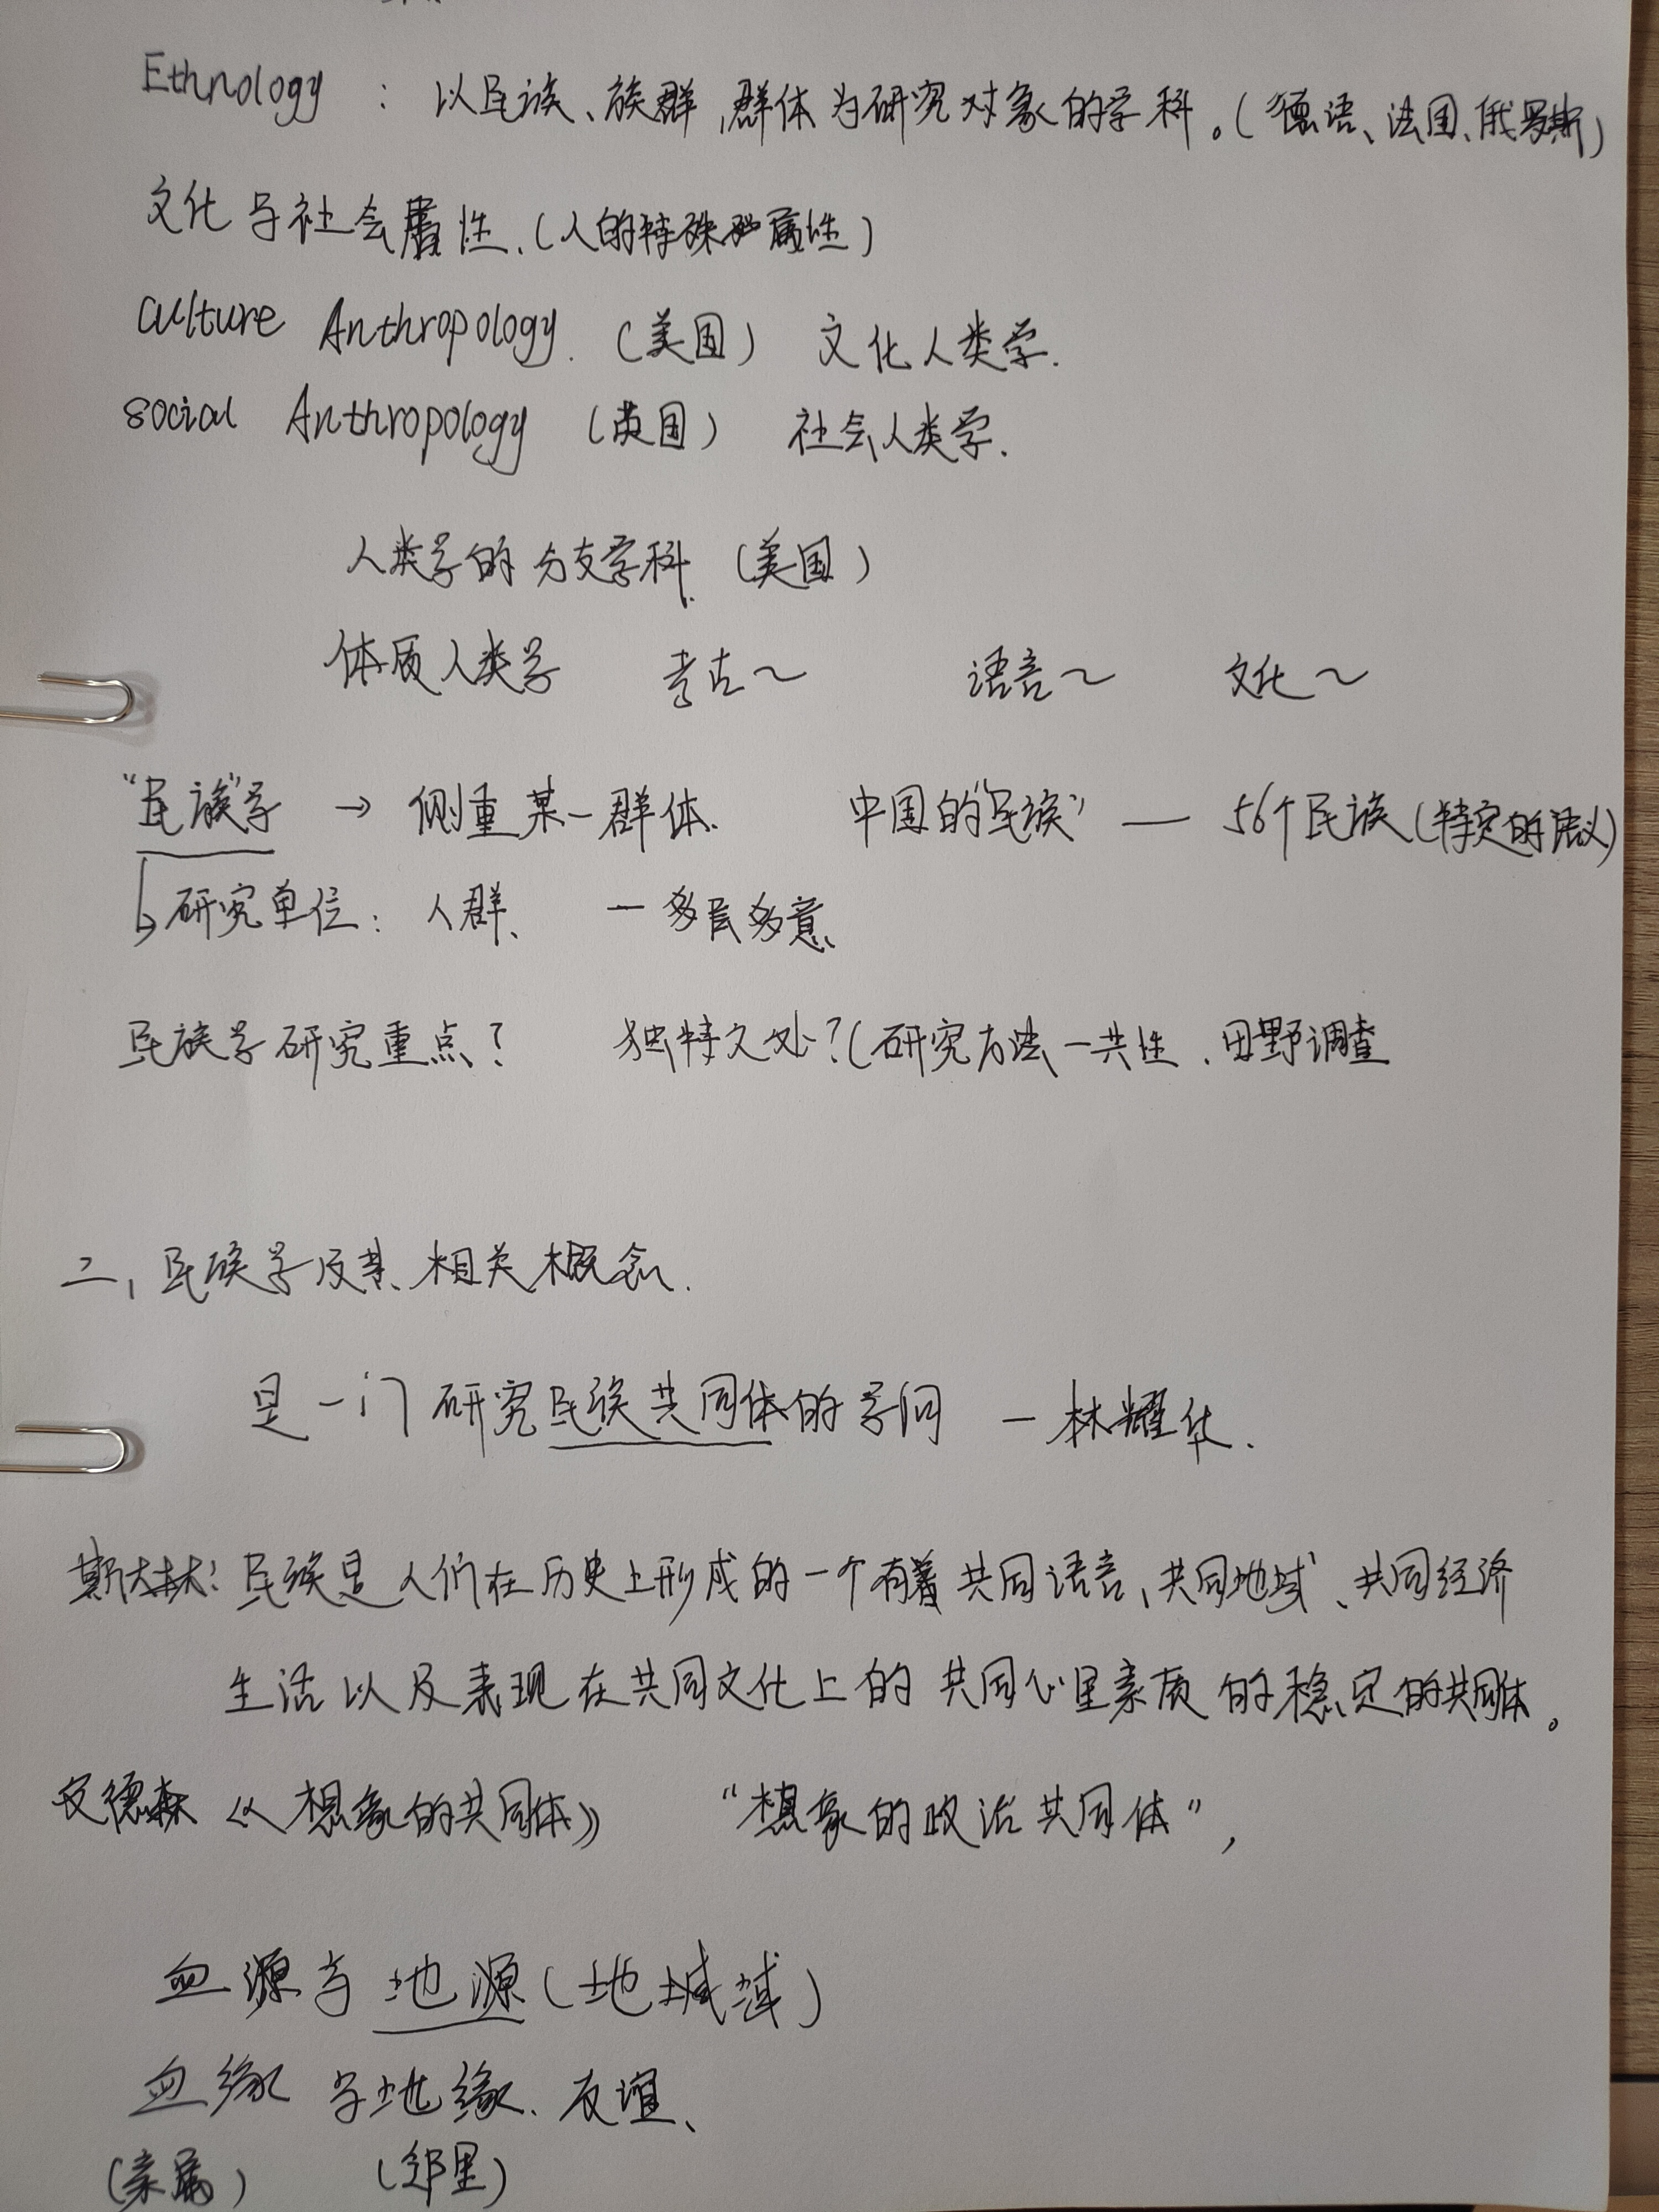 Ethnology : 以民族、族群,群体为研究对象的学科。(德语、法国、俄罗斯)
文化与社会属性.(人的特殊属性)
Culture Anthropology. (美国) 文化人类学.
social Anthropology (英国) 社会人类学.
人类学的分支学科. (美国)
体质人类学 考古~ 语言~ 文化~
“民族”学 → 侧重某一群体. 中国的“民族” — 56个民族(特定的语义)
↳研究单位: 人群、 — 多层多意
民族学研究重点? 独特之处?(研究方法—共性、田野调查
二、民族学及其相关概念.
是一门研究民族共同体的学问 — 林耀华.
斯大林: 民族是人们在历史上形成的一个有着共同语言、共同地域、共同经济
生活以及表现在共同文化上的共同心理素质的稳定的共同体。
安德森《想象的共同体》 “想象的政治共同体”,
血源与地源(地域)
血缘与地缘、友谊、
(亲属) (邻里)